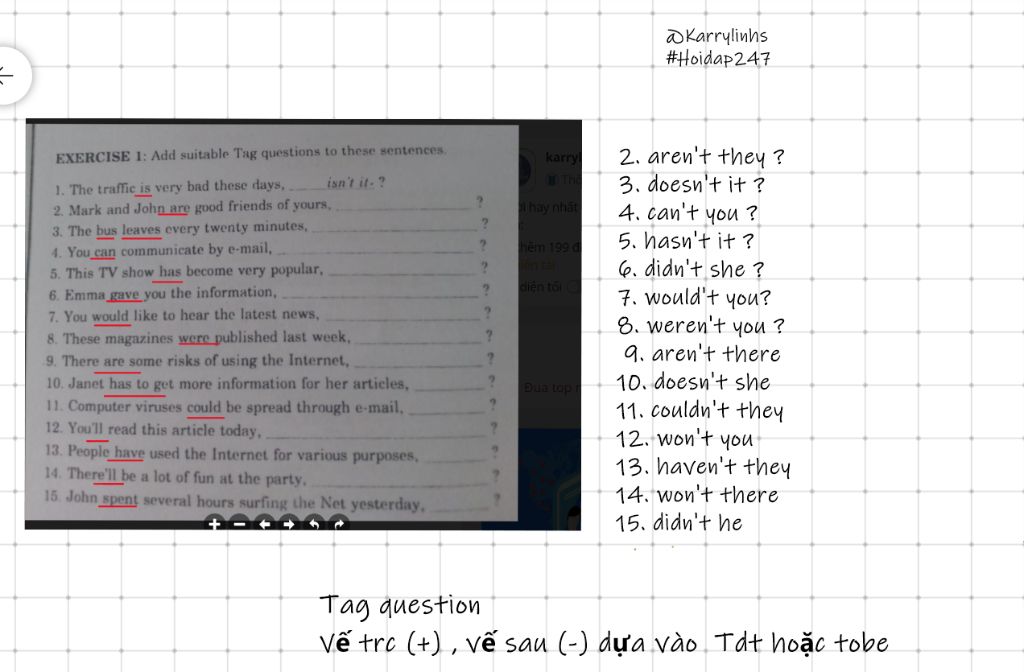 @Karrylinhs
#Hoidap247
EXERCISE 1: Add suitable Tag questions to these sentences.
1. The traffic is very bad these days, ____isn't it-?
2. Mark and John are good friends of yours, ____?
3. The bus leaves every twenty minutes, ____?
4. You can communicate by e-mail, ____?
5. This TV show has become very popular, ____?
6. Emma gave you the information, ____?
7. You would like to hear the latest news, ____?
8. These magazines were published last week, ____?
9. There are some risks of using the Internet, ____?
10. Janet has to get more information for her articles, ____?
11. Computer viruses could be spread through e-mail, ____?
12. You'll read this article today, ____?
13. People have used the Internet for various purposes, ____?
14. There'll be a lot of fun at the party, ____?
15. John spent several hours surfing the Net yesterday, ____?
karryl
hay nhất
thêm 199 đ
diện tối
Đua top
2. aren't they ?
3. doesn't it ?
4. can't you ?
5. hasn't it ?
6. didn't she ?
7. would't you?
8. weren't you ?
9. aren't there
10. doesn't she
11. couldn't they
12. won't you
13. haven't they
14. won't there
15. didn't he
Tag question
Vế trc (+) , vế sau (-) dựa vào Tdt hoặc tobe